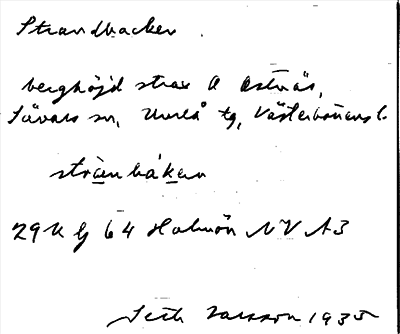 Strandbacken.
berghöjd strax O Ostnäs,
Sävars sn, Umeå tg, Västerbottens l.
strànbákan
29K 6j 64 Holmön NV A3
Seth Larsson 1935